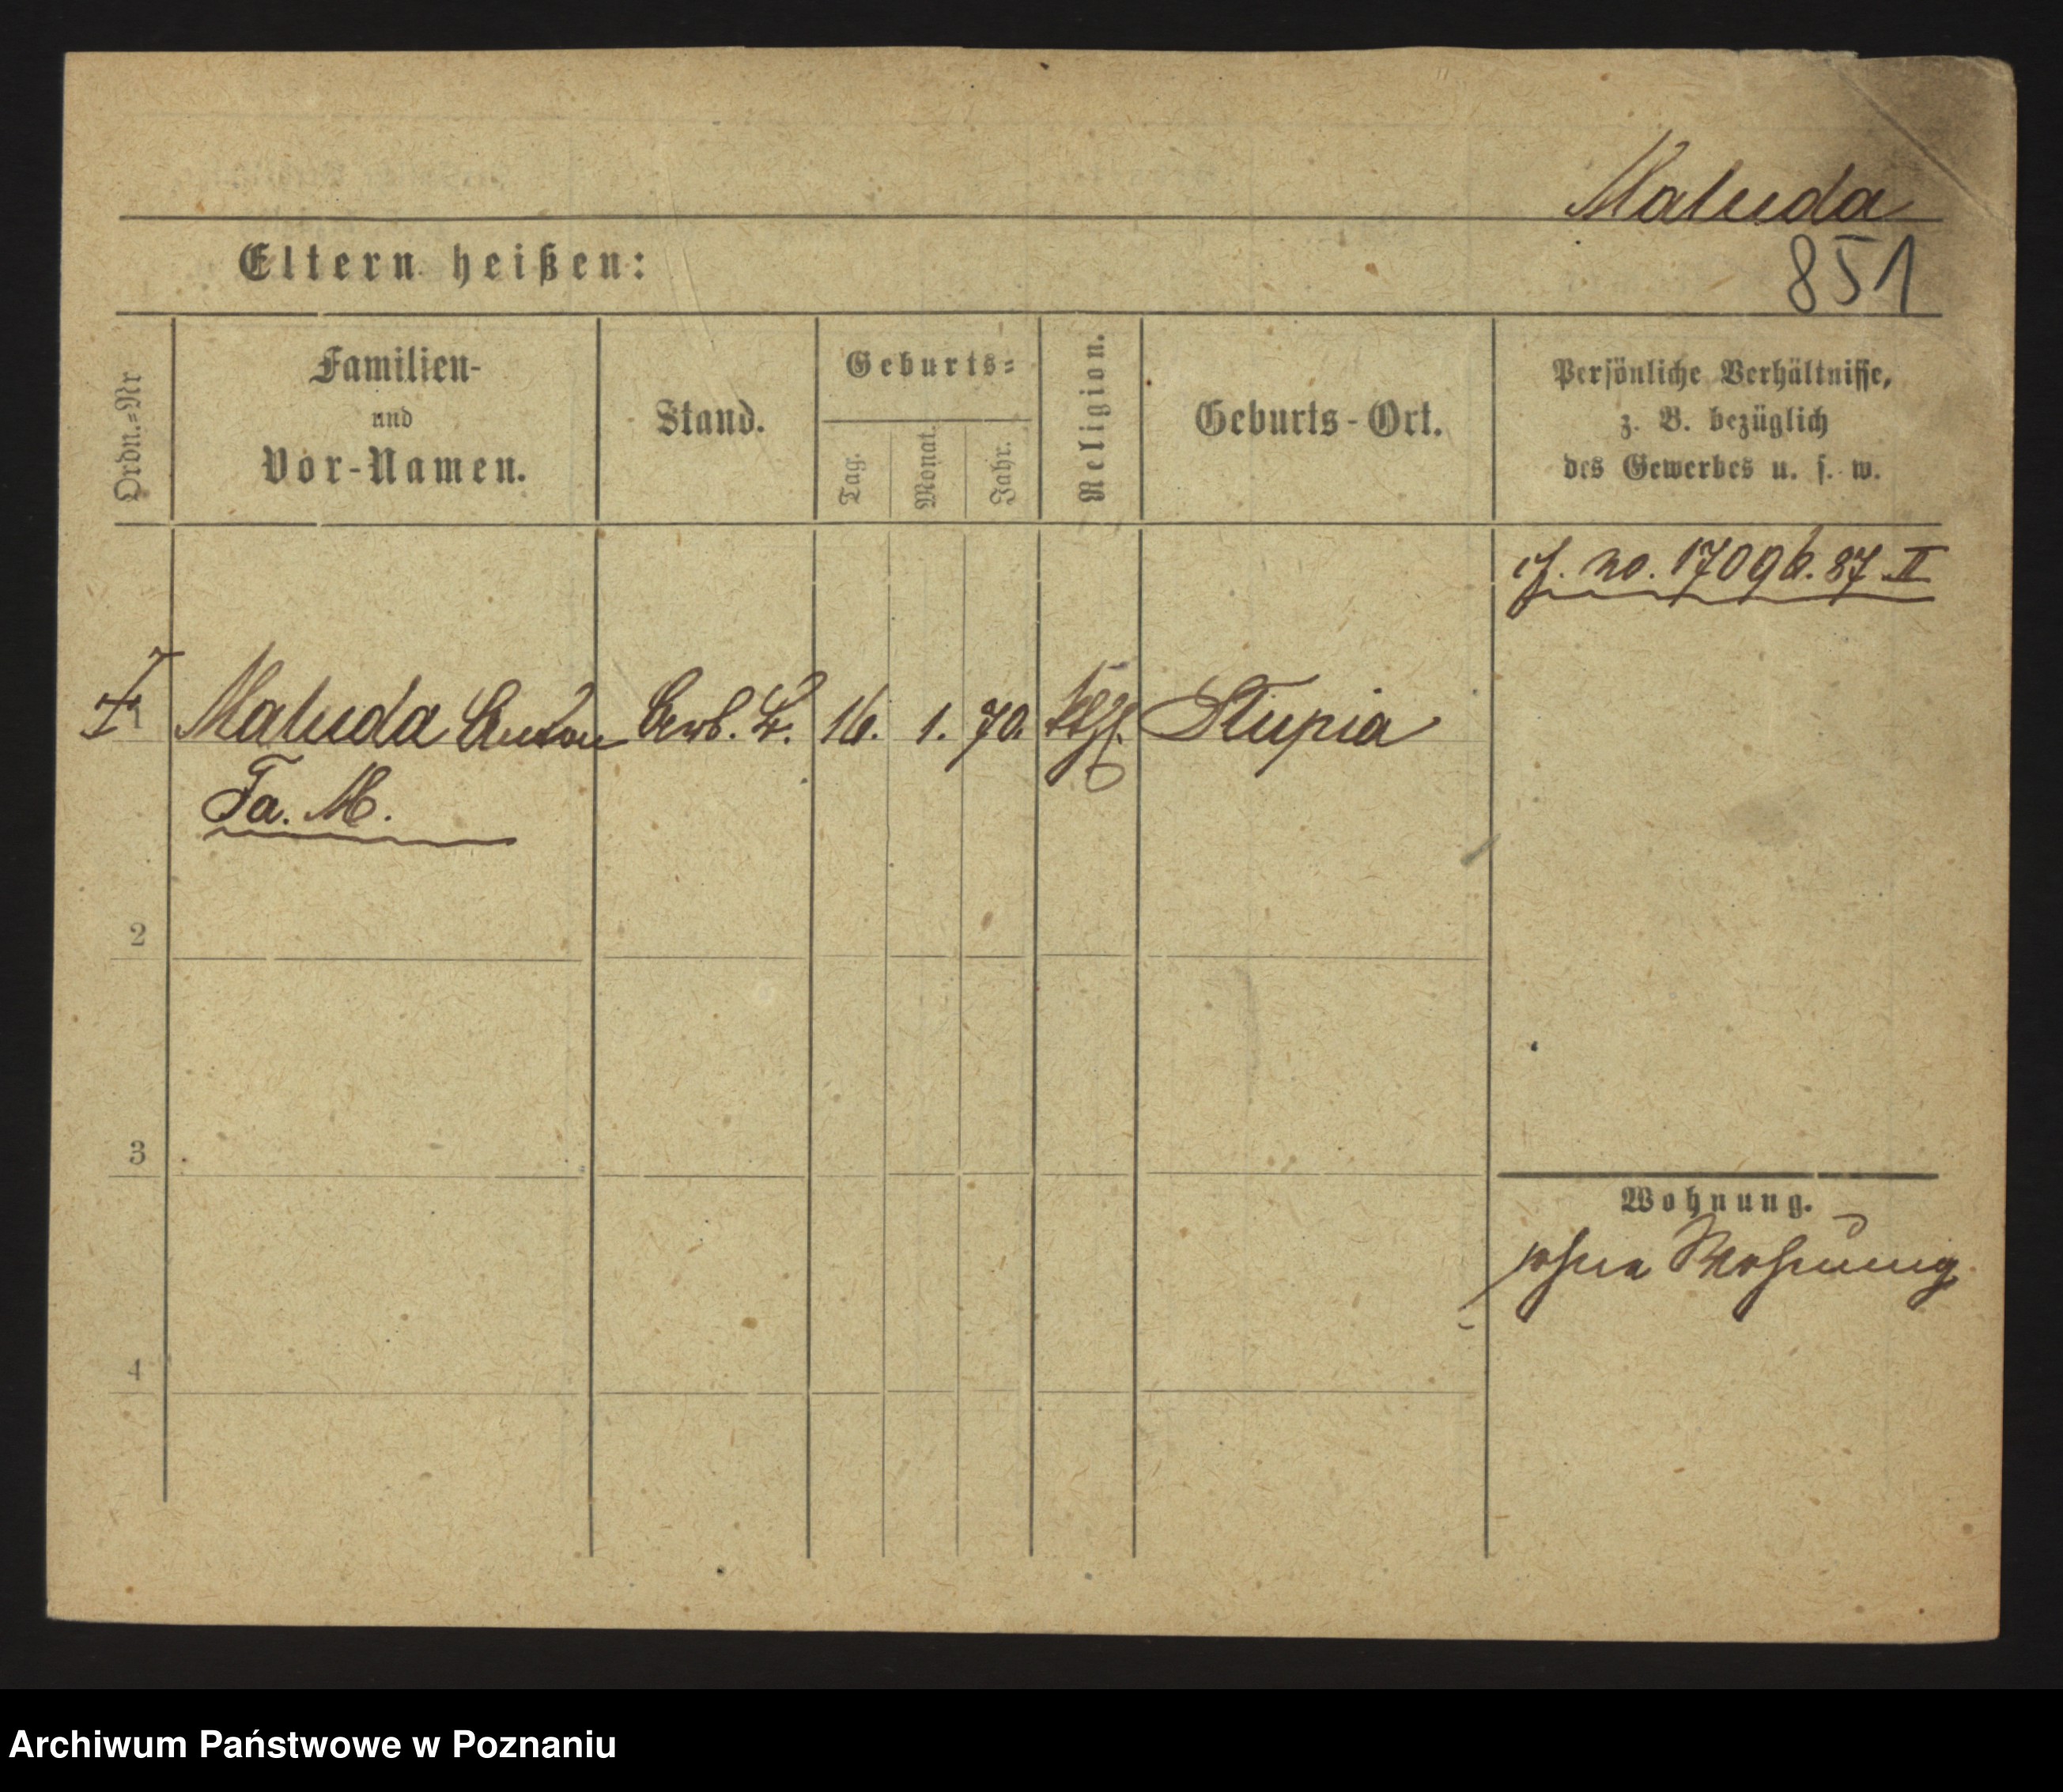 Maluda
Eltern heißen:
851
Ordn.-Nr
Familien-
und
Vor-Namen.
Stand.
Geburts-
Tag.
Monat.
Jahr.
Religion.
Geburts-Ort.
Persönliche Verhältnisse,
z. B. bezüglich
des Gewerbes u. s. w.
cf. no. 17096. 87 II
1 Maluda Anton Arb. 16. 1. 70. kth. Slupia
Fa. M.
2
3
Wohnung.
ohne Wohnung
4
Archiwum Państwowe w Poznaniu